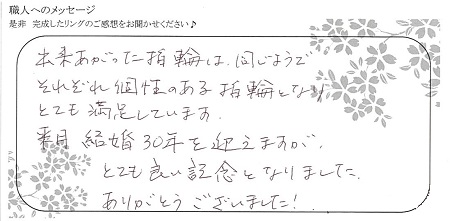 職人へのメッセージ
是非 完成したリングのご感想をお聞かせください♪
出来あがった指輪は、同じようで
それぞれ個性のある指輪となり
とても満足しています。
来月 結婚30年を迎えますが、
とても良い記念となりました。
ありがとうございました!